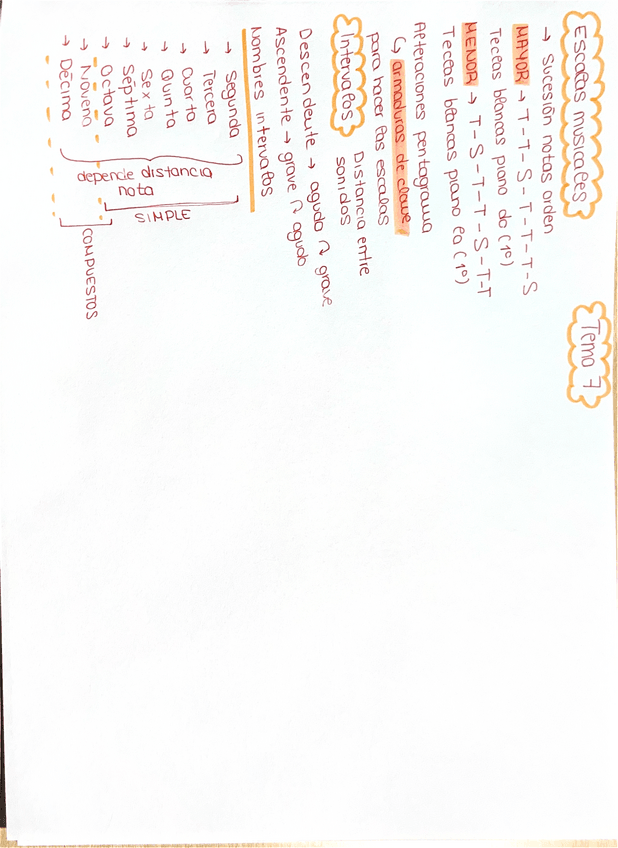 Tema 7
Escalas musicales
→ Sucesión notas orden
MAYOR → T-T-S-T-T-T-S
Teclas blancas piano do (1º)
MENOR → T-S-T-T-S-T-T
Teclas blancas piano la (1º)
Alteraciones pentagrama
↳ armaduras de clave
para hacer las escalas
Intervalos Distancia entre
sonidos
Descendente → agudo ↷ grave
Ascendente → grave ↷ agudo
Nombres intervalos
→ Segunda
→ Tercera
→ Cuarta
→ Quinta
→ Sexta
→ Séptima
→ Octava
→ Novena
→ Décima
depende distancia
nota
SIMPLE
COMPUESTOS